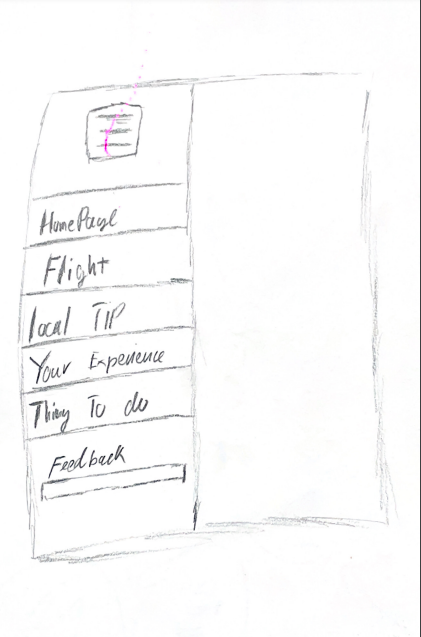 HomePage
Flight
local TIP
Your Experience
Thing To do
Feedback